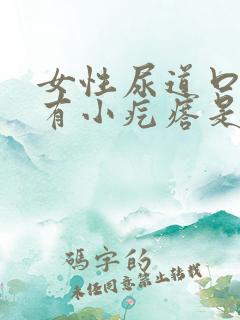 女性尿道口
有小疙瘩是
碼字的
未经同意禁止转载